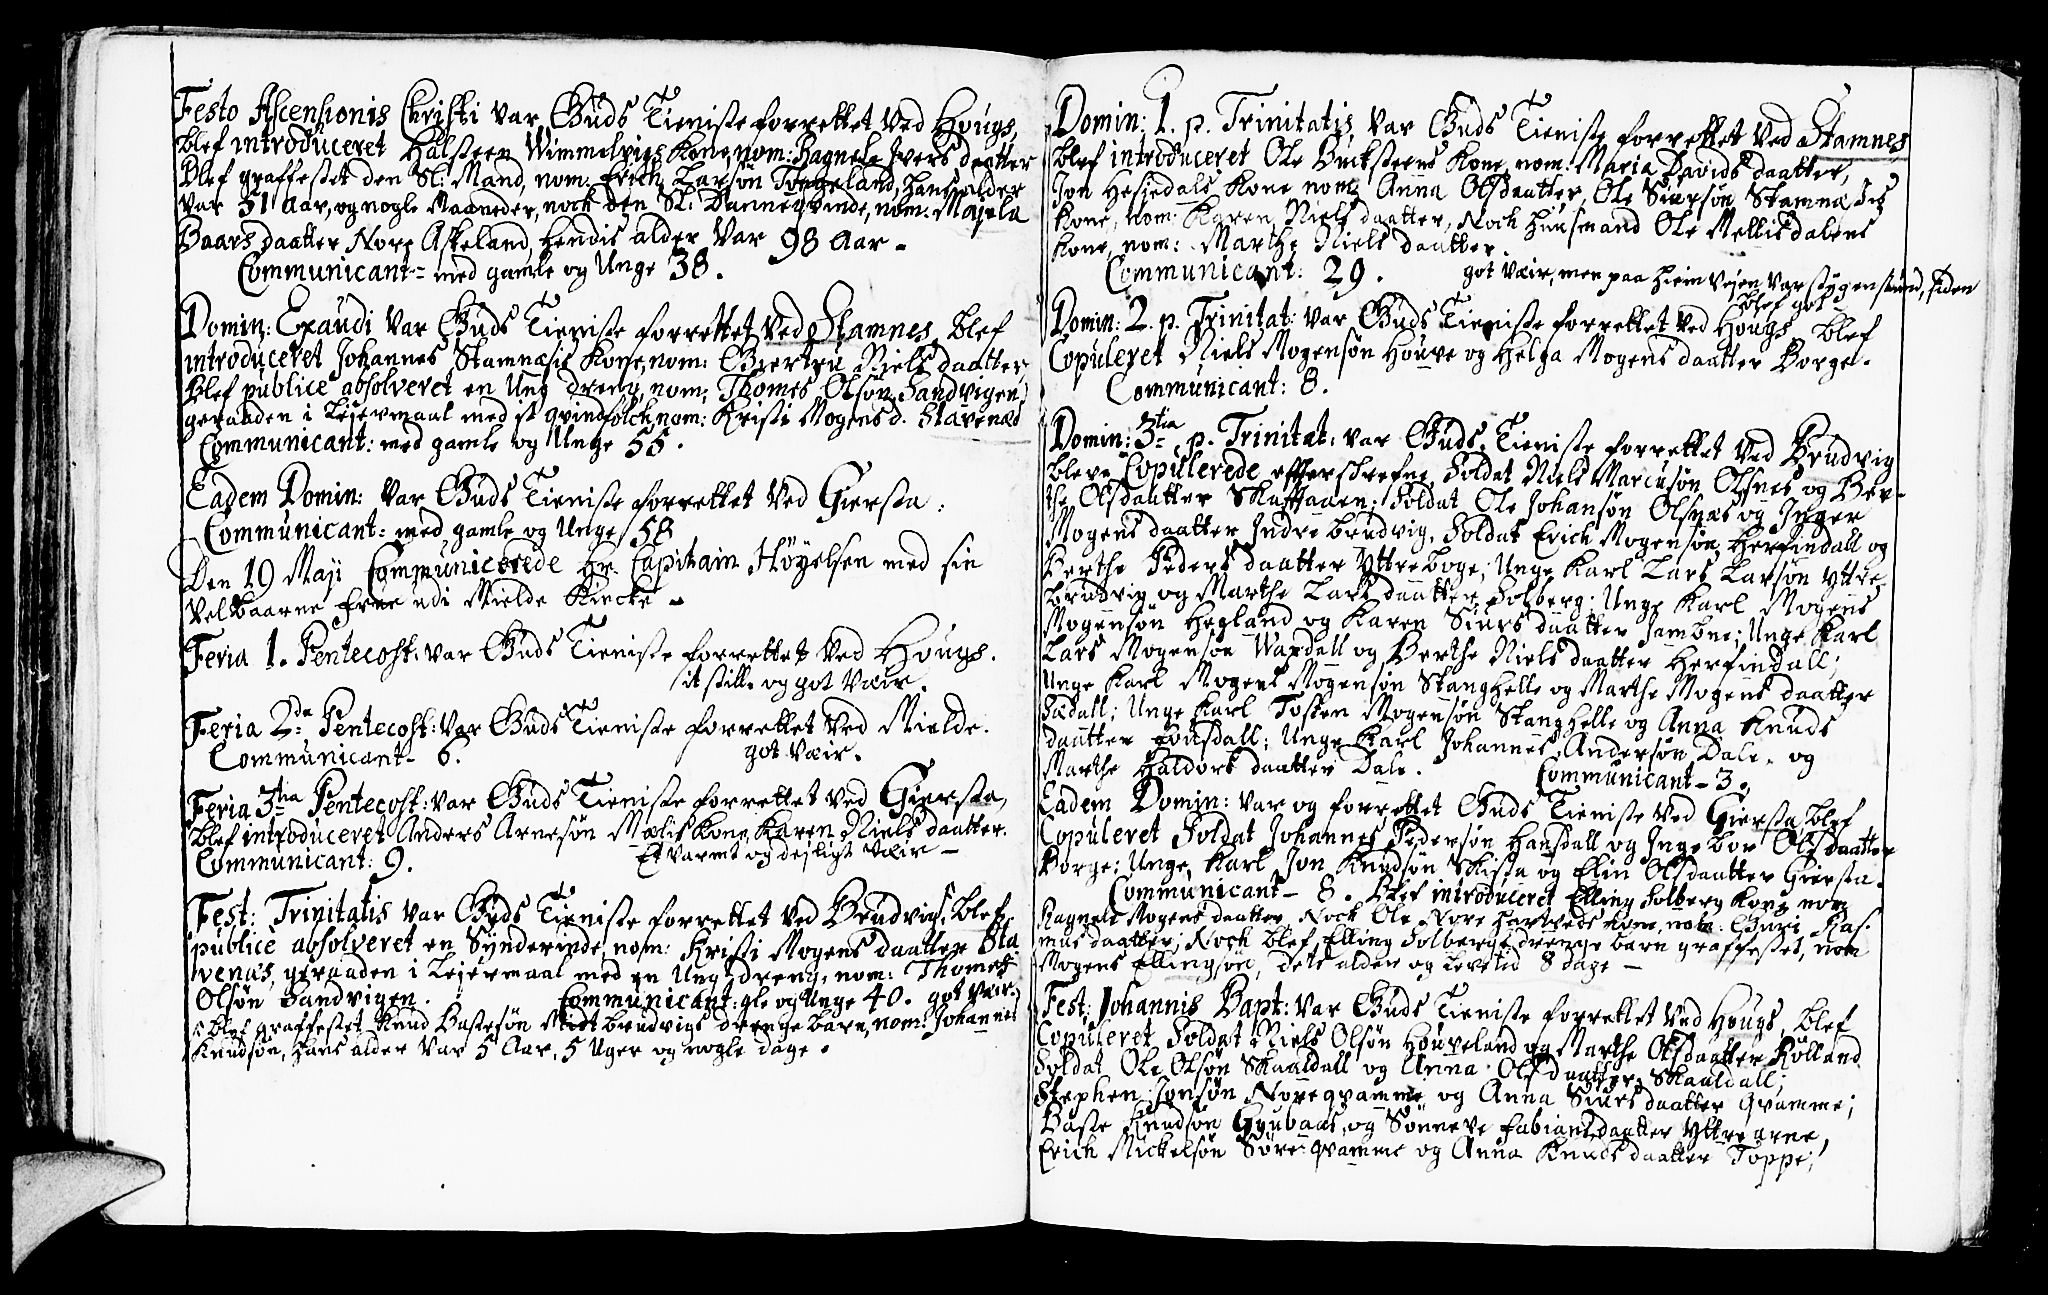 Festo Ascensionis Christi var Guds Tieniste forrettet ved Hougs,
blef introduceret Halsteen Wimmelvigs Kone, nom: Ragnele Ivers daatter
Blef graffestet den Sl: Mand, nom: Erich Larsøn Tongeland, hans alder
var 51 Aar, og nogle Maaneder, nock den Sl: Danneqvinde, nom: Magela
Baars daatter Nore Askeland, hendis alder var 98 Aar.
Communicant: med gamle og Unge 38.
Domin: Exaudi var Guds Tieniste forrettet ved Stamnes, blef
introduceret Johannes Stamnæsis Kone, nom: Giertru Niels daatter
Blef publicè absolveret en Ung dreng, nom: Thomes Olsøn Sandvigen
geraaden i Lejermaal med it qvindfolck, nom: Kristi Mogens d. Stavenæs
Communicant: med gamle og Unge 55.
Eadem Domin: var Guds Tieniste forrettet ved Giersta.
Communicant: med gamle og Unge 58
Den 19 Maji Communicerede Hr. Capitain Høyelsen med sin
Velbaarne frue udi Mielde Kircke
Feria 1. Pentecost: var Guds Tieniste forrettet ved Hougs.
it stille og got Vær.
Feria 2da Pentecost: var Guds Tieniste forrettet ved Mielde.
Communicant 6. got Væir.
Feria 3tia Pentecost: var Guds Tieniste forrettet ved Giersta,
blef introduceret Anders Arnesøn Mælis Kone, Karen Niels daatter.
Communicant: 9. Et varmt og dejligt Væir
Fest: Trinitatis var Guds Tieniste forrettet ved Brudvig, blef
publicè absolveret en Synderinde, nom: Kristi Mogens daatter Sta
venæs, geraaden i Lejermaal med en Ung dreng, nom: Thomes
Olsøn Sandvigen. Communicant: gle og Unge 40. got Vær.
blef graffestet Knud Bastesøn Midt brudvigs drenge barn, nom: Johannes
Knudsøn, hans alder var 5 Aar, 5 Uger og nogle dage.
Domin: 1. p. Trinitatis, var Guds Tieniste forrettet ved Stamnes,
blef introduceret Ole Bucksteens Kone, nom: Maria Davids daatter,
Jon Hesjedals Kone nom: Anna Olsdaatter, Ole Siursøn Stamnæsis
Kone, nom: Karen Niels daatter, Noch huusmand Ole Mellisdalens
Kone, nom: Marthe Niels daatter.
Communicant: 29. got Væir, men paa hiem Vejen var stygen stund, siden
blef got
Domin: 2. p. Trinitat: var Guds Tieniste forrettet ved Hougs, blef
Copuleret Niels Mogensøn Houve og Helga Mogens daatter Borge.
Communicant: 8.
Domin: 3tia p. Trinitat: var Guds Tieniste forrettet ved Brudvig
bleve Copulerede efterschrefne, Soldat Niels Marcusøn Olsnes og Ber-
the Olsdaatter Skaftaaen; Soldat Ole Johansøn Olsnæs og Inger
Mogens daatter Indre brudvig, Soldat Erich Mogensøn Herfindall og
Berthe Peders daatter Yttreboge; Unge Karl Lars Larsøn Yttre
brudvig og Marthe Lars daatter Solberg; Unge Karl Mogens
Mogensøn Hegland og Karen Siurs daatter Jambne; Unge Karl
Lars Mogensøn Waxdall og Berthe Niels daatter Herfindall;
Unge Karl Mogens Mogensøn Stanghelle og Marthe Mogens daatter
Sædall; Unge Karl Tosten Mogensøn Stanghelle og Anna Knuds
daatter Fousdall; Unge Karl Johannes Andersøn Dale, og
Marthe Haldors daatter Dale. Communicant 3.
Eadem Domin: var og forrettet Guds Tieniste ved Giersta, blef
Copuleret Soldat Johannes Pedersøn Hansdall og Ingebor Olsdaatter
Borge; Unge Karl Jon Knudsøn Skista og Elin Olsdaatter Giersta.
Communicant 8. Blef introduceret Elling Solberg Kone nom
Ragnele Mogens daatter, Nock Ole Nore Hartveds Kone, nom: Guri Ras-
mus daatter; Noch blef Elling Solbergs drenge barn graffestet, nom
Mogens Ellingsøn, dets alder og Levetid 8 dage
Fest: Johannis Bapt: var Guds Tieniste forrettet ved Hougs, blef
Copuleret Soldat Niels Olsøn Houveland og Marthe Olsdaatter Rolland
Soldat Ole Olsøn Skaaldall og Anna Olsdaatter Skaaldall;
Stephen Jonsøn Noreqvamme og Anna Siurs daatter Qvamme;
Baste Knudsøn Giubaas, og Sønneve Fabians daatter Yttre arne,
Erich Mickelsøn Søre qvamme og Anna Knuds daatter Toppe;